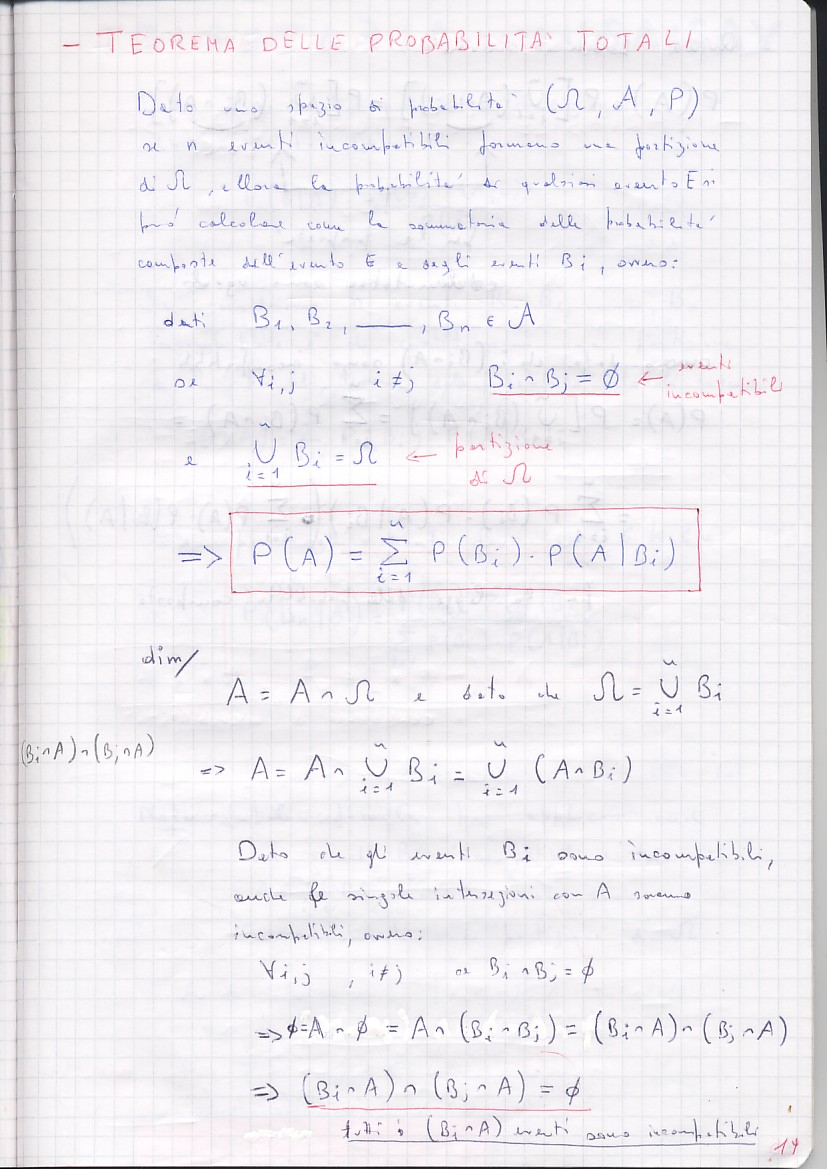 - TEOREMA DELLE PROBABILITA' TOTALI
Dato uno spazio di probabilita' (Ω, A, P)
se n eventi incompatibili formano una partizione
di Ω, allora la probabilita' di qualsiasi evento E si
puo' calcolare come la sommatoria delle probabilita'
composte dell'evento E e degli eventi Bi, ovvero:
dati B1, B2, ___, Bn ∈ A
se ∀i,j i≠j Bi ∩ Bj = ∅ ← eventi incompatibili
e ⋃_{i=1}^{n} Bi = Ω ← partizione di Ω
=> P(A) = Σ_{i=1}^{n} P(Bi) · P(A|Bi)
dim/
A = A ∩ Ω e dato che Ω = ⋃_{i=1}^{n} Bi
(Bi∩A)∩(Bj∩A)
=> A = A ∩ ⋃_{i=1}^{n} Bi = ⋃_{i=1}^{n} (A∩Bi)
Dato che gli eventi Bi sono incompatibili,
anche le singole intersezioni con A saranno
incompatibili, ovvero:
∀i,j , i≠j se Bi ∩ Bj = ∅
=> ∅=A ∩ ∅ = A ∩ (Bi ∩ Bj) = (Bi∩A) ∩ (Bj∩A)
=> (Bi∩A) ∩ (Bj∩A) = ∅
tutti i (Bi∩A) eventi sono incompatibili
14